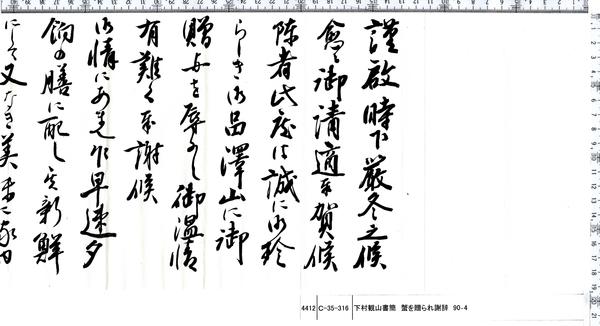 謹啓時下厳冬之候
愈々御清適奉賀候
陳者此度は誠に御珍
らしき御品澤山に御
贈与を辱のし御温情
有難く奉謝候
御情にあまへ早速夕
餉の膳に配し其新鮮
にして又なき美味に家内
4412 C-35-316 下村観山書簡 蟹を贈られ謝辞 90-4